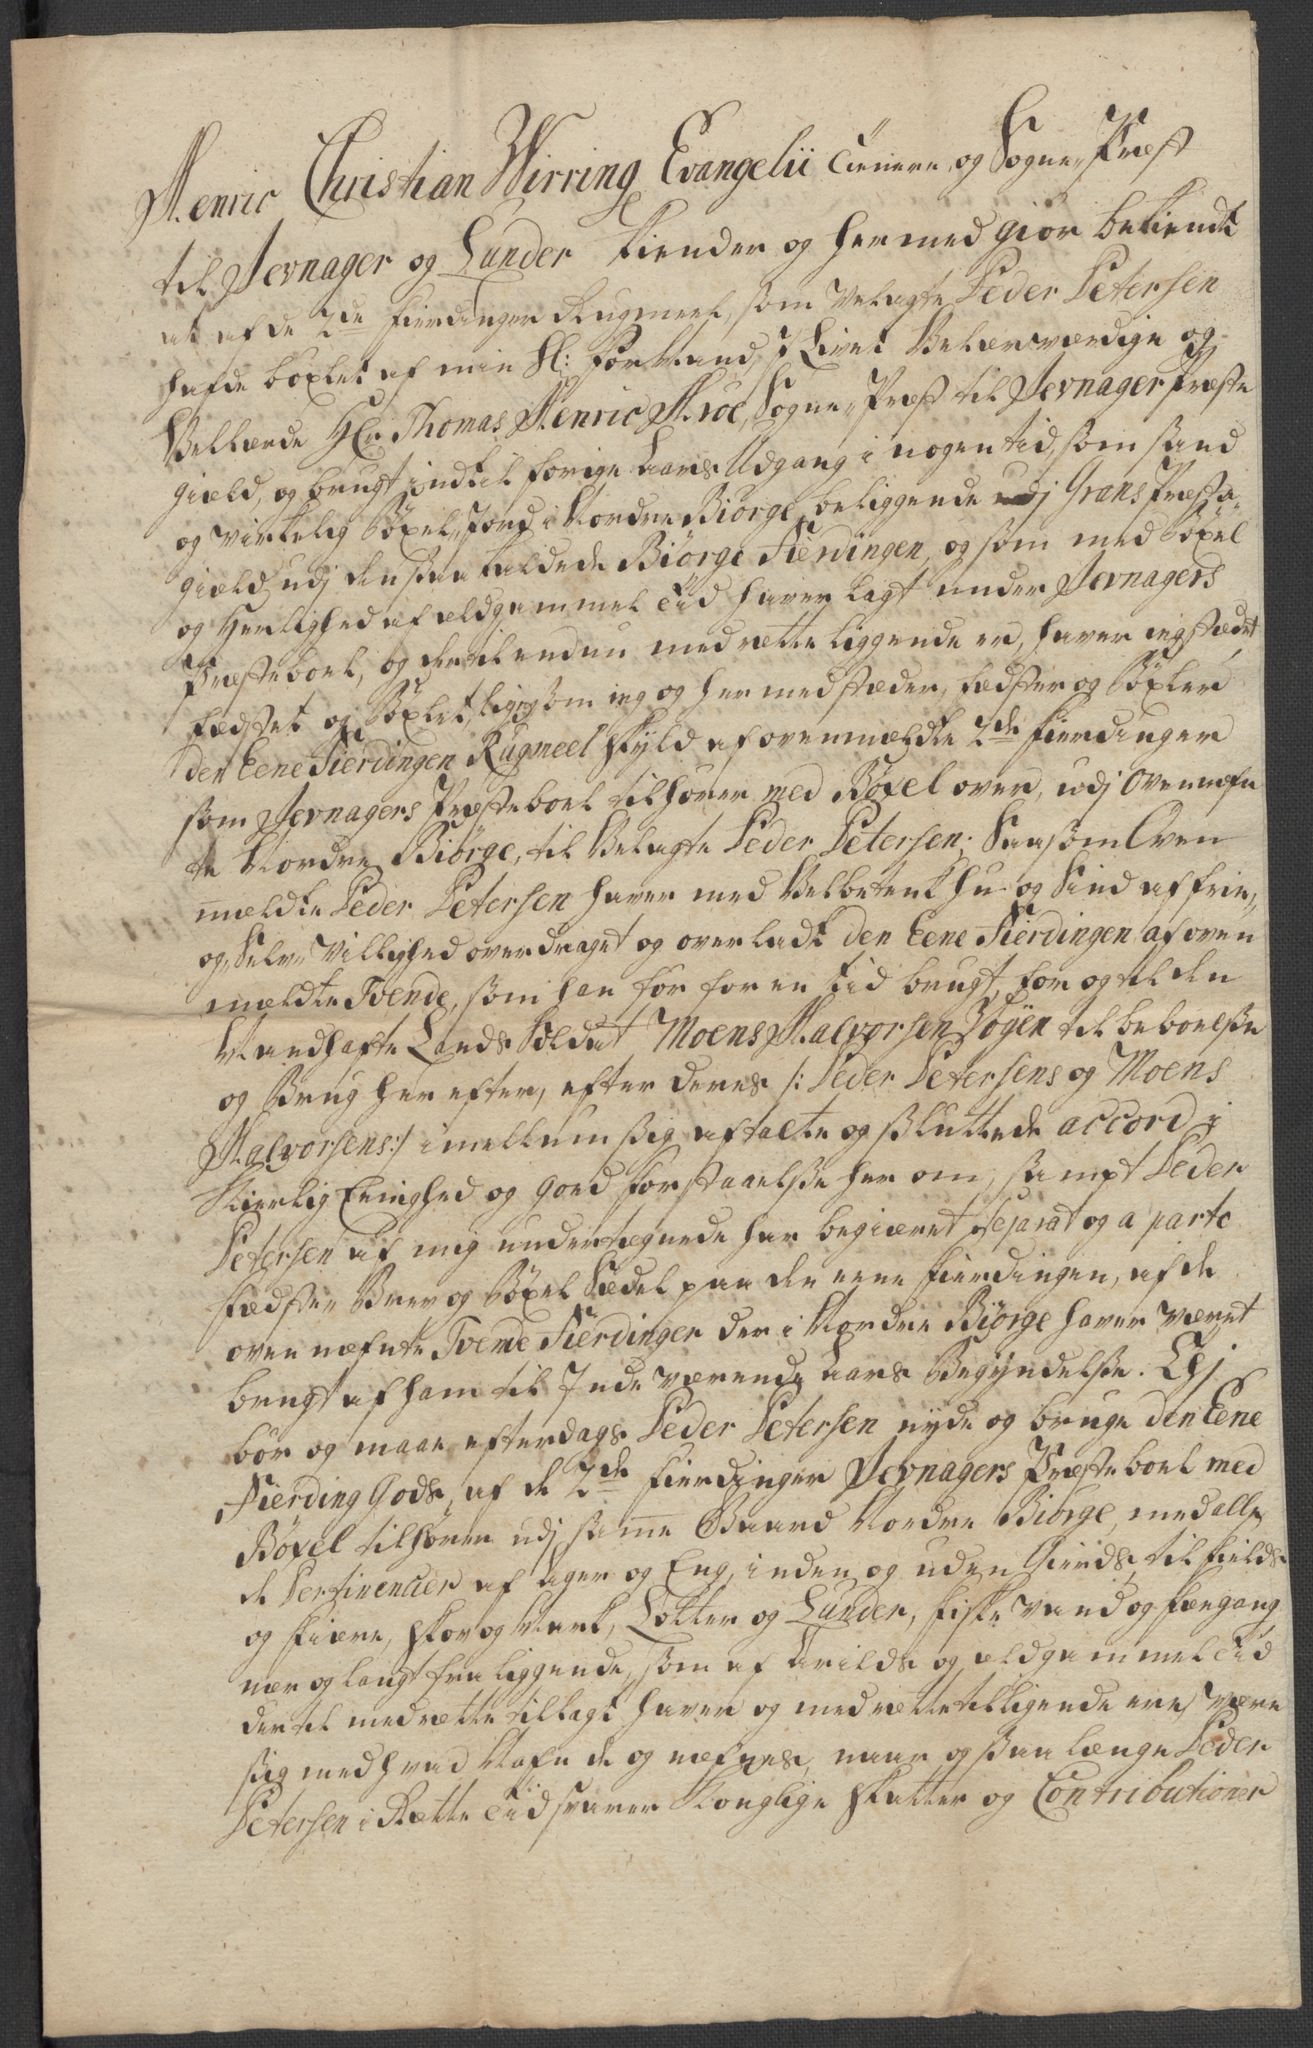 Henric Christian Wirring Evangelii Tienere, og Sogne-Præst
til Jevnager og Lunder kiender og hermed giør bekiendt
at af de 2de Fierdinger Rugmeel, som velagte Peder Petersen
hafde böxlet af min Sl: Formand, J Livet Velærværdige og
Vellærde Hr. Thomas Henric Hroe, Sogne-Præst til Jevnager Præste
Gield, og brugt indtil forrige Aars Udgang i nogen tid, som sand
og virkelig Böxel-Jord i Nordre Biörge, beliggende udj Grans Præste-
gield udj den saa kaldede Biörge Fierdingen, og som med Böxel
og Herlighed af ældgammel Tiid haver lagt under Jevnagers
Præsteboel, og dertil endnu med rette liggende er, haver ieg stædet
fædstet og Böxlet, ligesom ieg og hermed stæder, fædster og Böxler
den Eene Fierdingen Rugmeel Skyld af ovenmældte 2de Fierdinger
som Jevnagers Præsteboel tilhører med Böxel over, udj Ovennæfn
te Nordre Biörge, til Velagte Peder Petersen; Saasom Oven
mældte Peder Petersen haver med Velbetenkt Hu og Sind af frie-
og Selv-Villighed overdraget og overladt den Eene Fierdingen af oven
mældte Tvende, som han før for en Tid brugt, for og til den
Mandhafte Lands Soldat Moens Halvorsen Jögen til beboelse
og Brug herefter, efter deres /: Peder Petersens og Moens
Halvorsens:/ imellum sig aftalte og sluttede accord i
Kierlig Eenighed og goed Forstaaelse her om, sampt Peder
Petersen af mig undertegnede har begiæret separat og a parte
Fædste Brev og Böxel Sedel paa den eene Fierdingen, af de
ovennæfnte Tvende Fierdinger der i Nordre Biörge haver været
brugt af ham til Inde værende Aars Begyndelse. Thj
bör og maae efterdags Peder Petersen nyde og bruge den Eene
Fierding Gods, af de 2de Fierdinger Jevnagers Præsteboel med
Böxel tilhører udj samme Gaard Nordre Biörge, med alle
de Pertinencier af Ager og Eng, inden og uden Gierds, til Fields
og Fiære, Skov og Mark, Lotter og Lunder, Fiske Vand og Fægang
nær og langt fra liggende, som af Arilds og ældgammel Tiid
der til med rette tillagt haver og med rette tilligende ere, være
sig med hvad Nafn de og næfnes, naar og saa længe Peder
Petersen i Rette Tiid svarer Kongelige Skatter og Contributioner